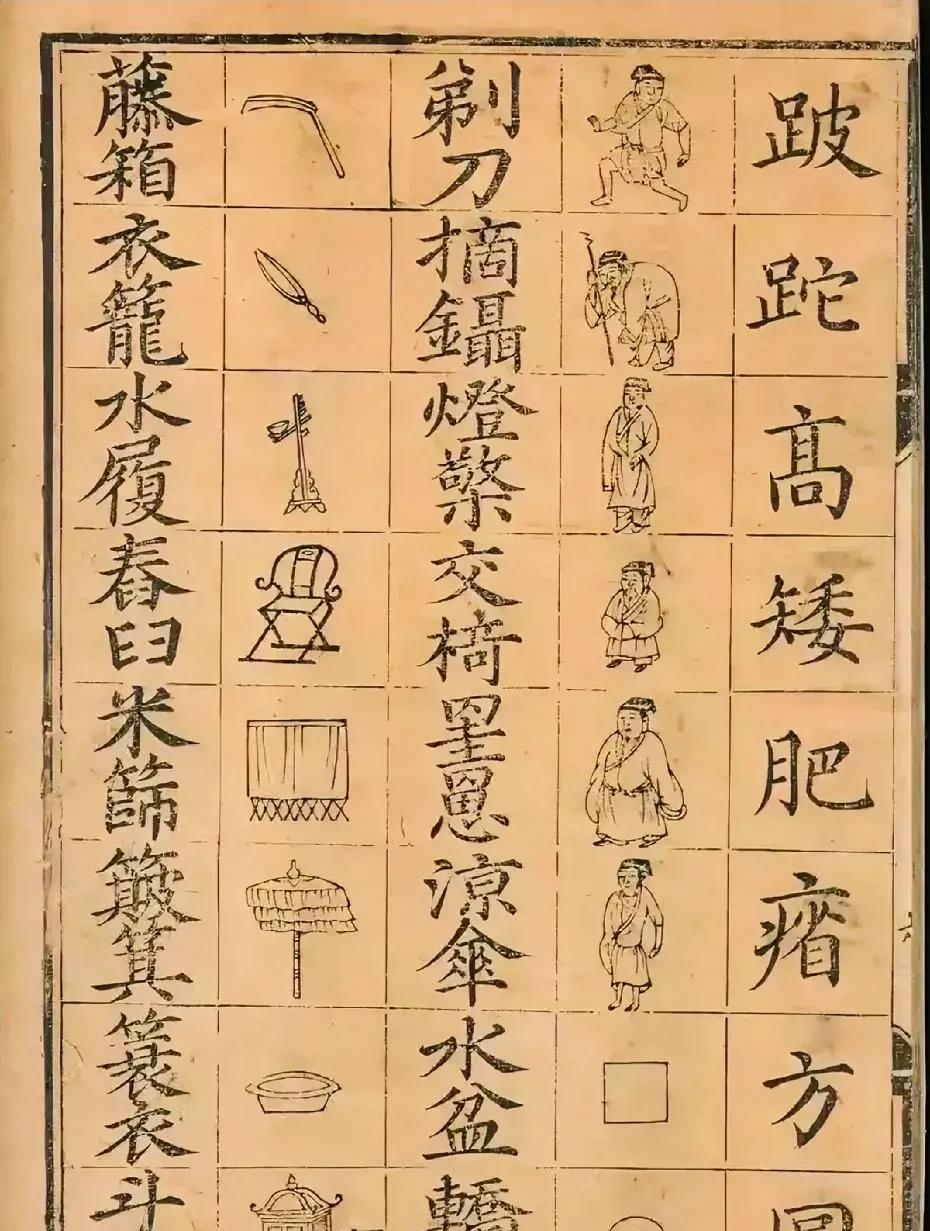 跛
跎
髙
矮
肥
瘠
方
圓
剃刀
摘鑷
燈檠
交椅
罣罳
涼傘
水盆
轎
藤箱
衣籠
水履
舂臼
米篩
簸箕
簑衣
斗